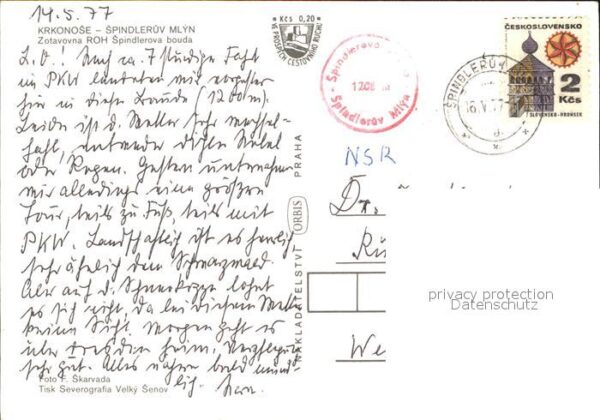 14.5.77
KRKONOŠE – ŠPINDLERŮV MLÝN
Zotavovna ROH Špindlerova bouda
L.O.! Nach ca. 7 stündiger Fahrt
im PKW landeten wir vorgestern
hier in dieser Baude (1200m).
Leider ist d. Wetter sehr wechsel-
haft, entweder dichter Nebel
oder Regen. Gestern unternahmen
wir allerdings eine größere
Tour, teils zu Fuß, teils mit
PKW. Landschaftlich ist es herrlich
sehr ähnlich dem Schwarzwald.
Aber auf d. Schneekoppe lohnt
es sich nicht, da bei diesem Wetter
keine Sicht. Morgen geht es
über Dresden heim, Verpflegung
sehr gut. Alles nähere bald münd-
lich.
Foto F. Škarvada
Tisk Severografia Velký Šenov
NAKLADATELSTVÍ ORBIS PRAHA
Kčs 0,20
VE PROSPĚCH CESTOVNÍHO RUCHU
Spindlerova
1208 m
Špindlerův Mlýn
ŠPINDLERŮV
16.V.77
ČESKOSLOVENSKO
2
Kčs
SLOVENSKO-HRONSEK
NSR
Dr.
Rü
We
privacy protection
Datenschutz